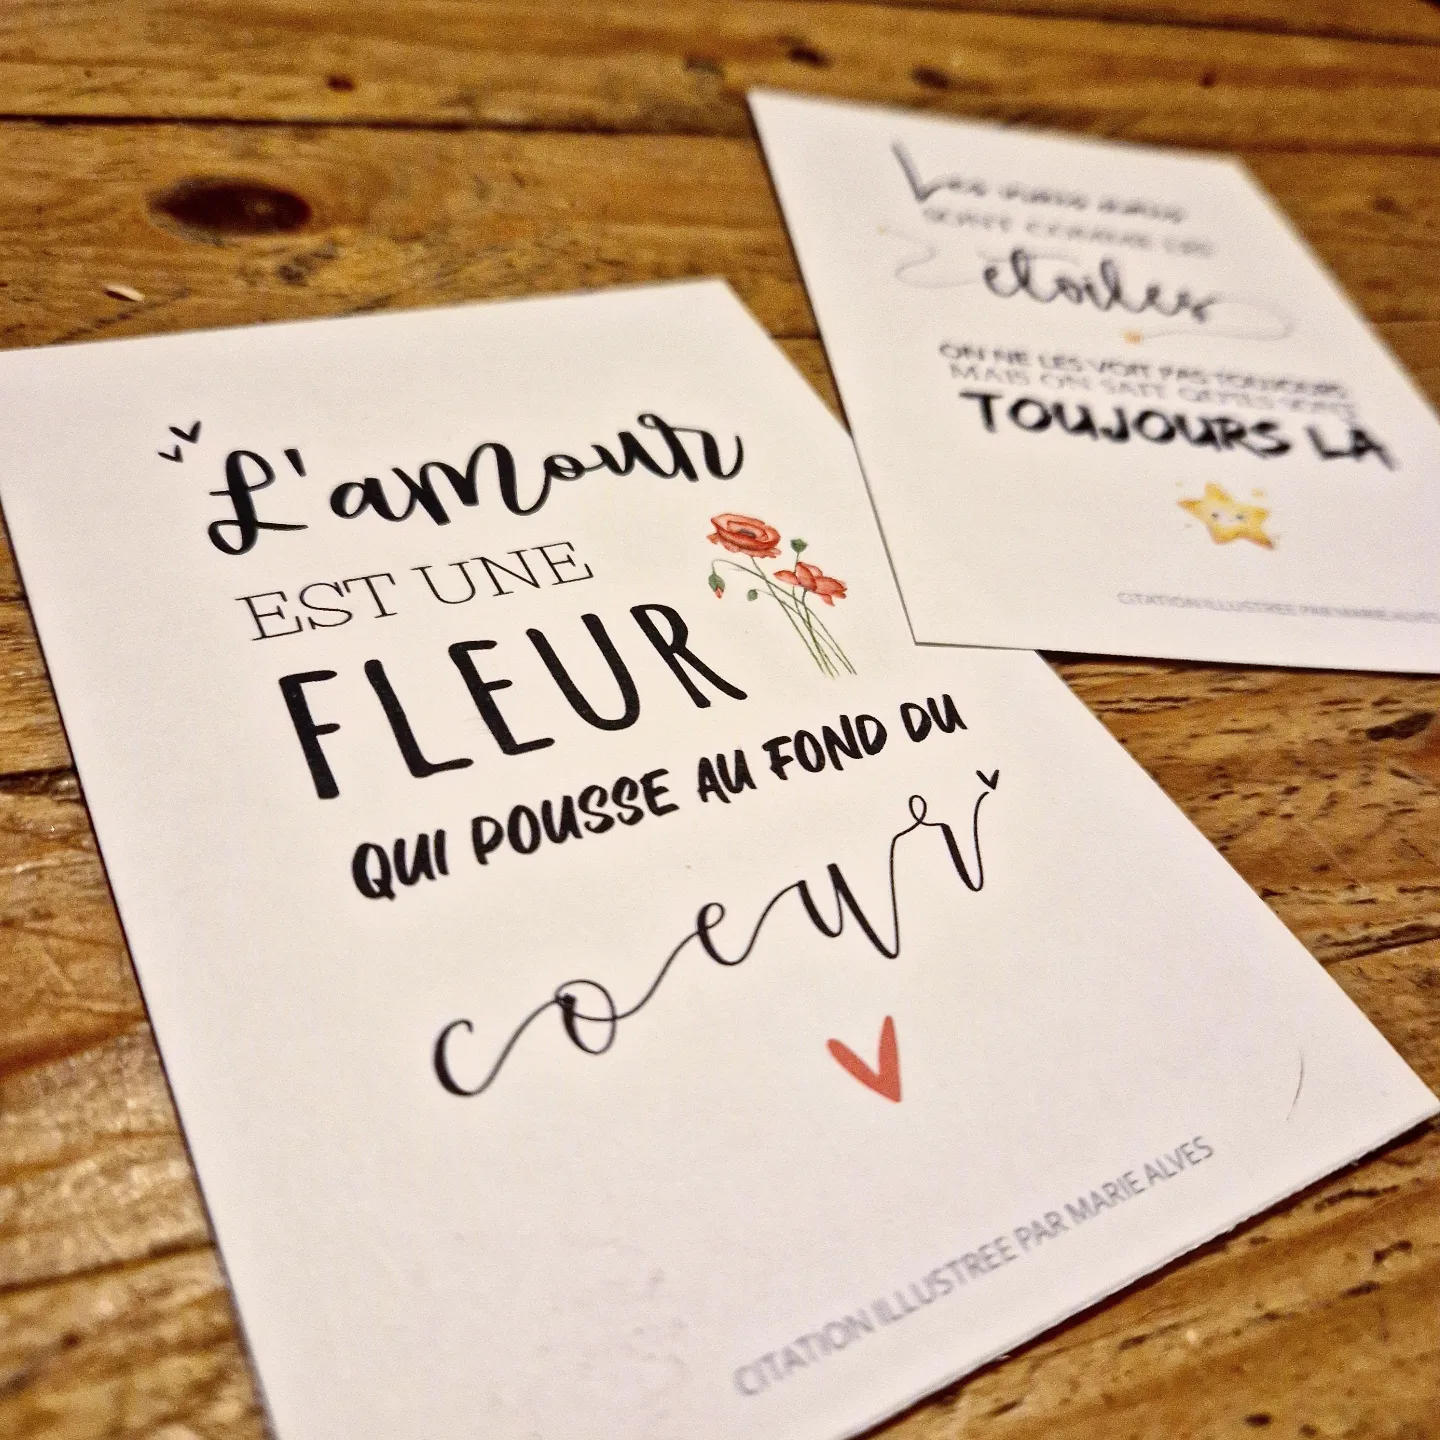 L'amour
EST UNE
FLEUR
QUI POUSSE AU FOND DU
coeur
CITATION ILLUSTREE PAR MARIE ALVES
Les vrais amis
SONT COMME LES
étoiles
ON NE LES VOIT PAS TOUJOURS
MAIS ON SAIT QU'ILS SONT
TOUJOURS LÀ
CITATION ILLUSTREE PAR MARIE ALVES